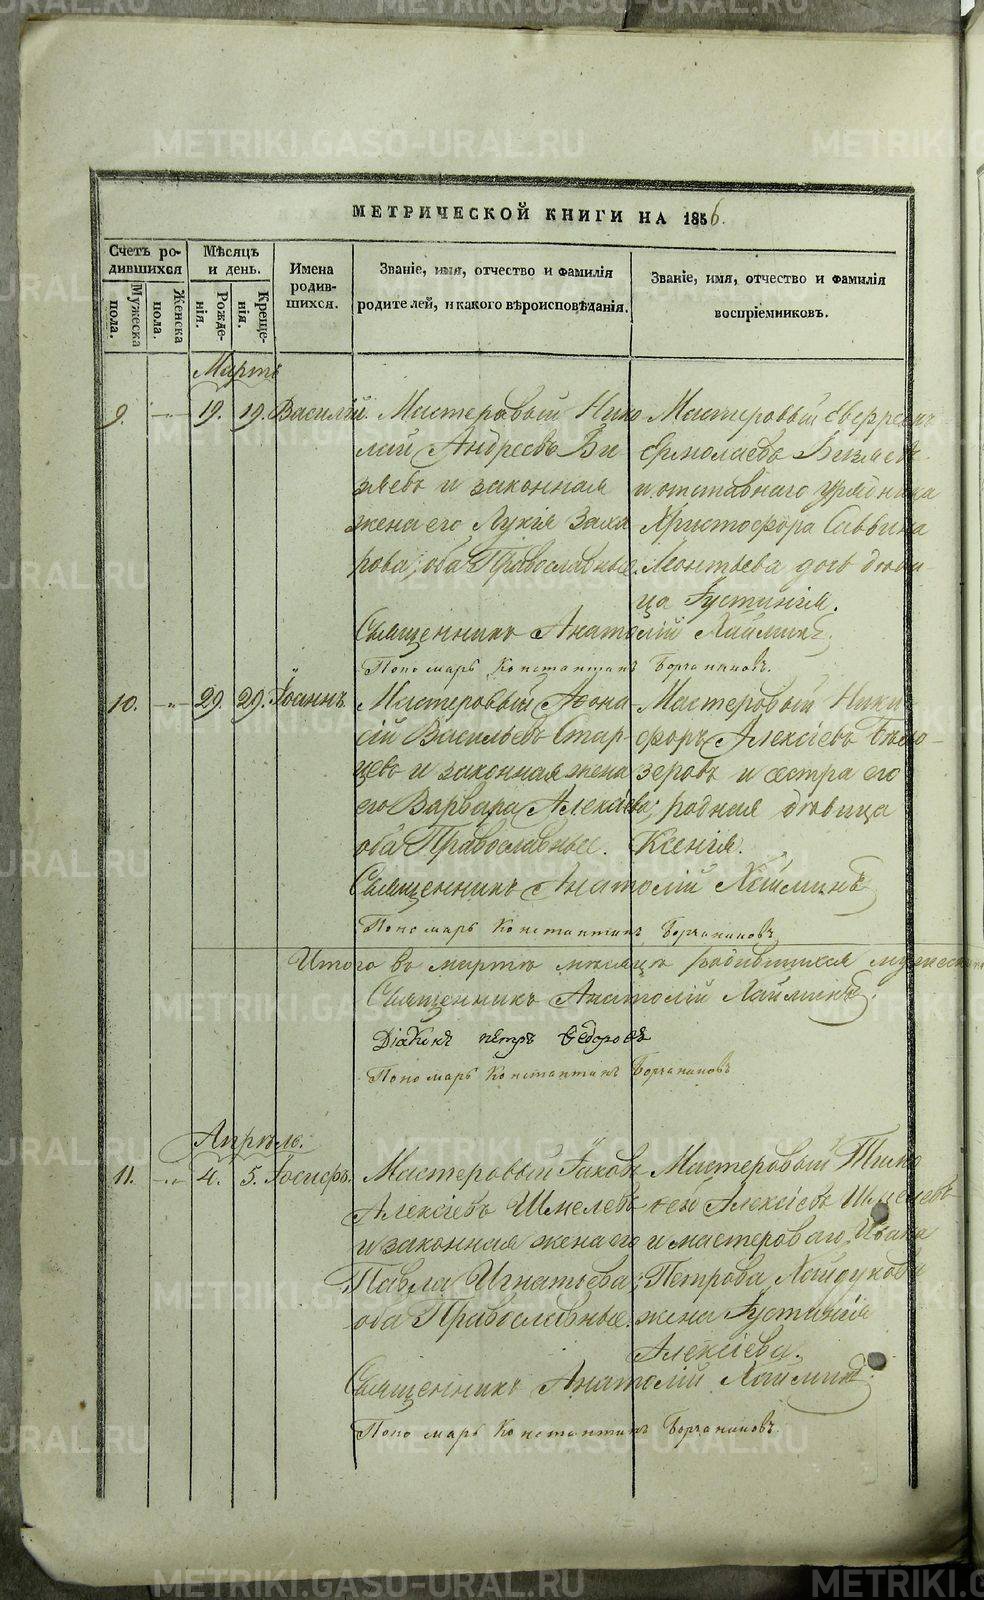 МЕТРИЧЕСКОЙ КНИГИ НА 1856.
Счетъ ро-
дившихся
Мужеска пола.
Женска пола.
Мѣсяцъ
и день.
Рожде-
нія.
Креще-
нія.
Имена
родив-
шихся.
Званіе, имя, отчество и фамилія
родителей, и какого вѣроисповѣданія.
Званіе, имя, отчество и фамилія
воспріемниковъ.
Мартъ
9. 19. 19. Василій.
Мастеровый Нико
лай Андреевъ Ви
зяевъ и законная
жена его Лукія Заха
рова, оба Православные.
Мастеровый
Ермолаевъ Визяевъ
и отставнаго урядника
Христофора Саввина
Леонтьева дочь дѣви-
ца Густинія.
Священникъ Анатолій Хаймин
Пономарь Константинъ Борчаниновъ.
10. 29. 29. Іоаннъ.
Мастеровый Афона-
сій Васильевъ Стар-
цевъ и законная жена
его Варвара Алексѣева;
оба Православные.
Мастеровый Ники-
форъ Алексіевъ Бѣло-
зеровъ и сестра его
родная дѣвица
Ксенія.
Священникъ Анатолій Хайминъ
Пономарь Константинъ Борчаниновъ
Итого въ мартѣ мѣсяцѣ родившихся мужеска
Священникъ Анатолій Хайминъ.
Діаконъ Петръ Ѳедоровъ
Пономарь Константинъ Борчаниновъ
Апрѣль.
11. 4. 5. Іосифъ.
Мастеровый Іаковъ
Алексіевъ Шмелевъ
и законная жена его
Павла Игнатьева;
оба Православные.
Мастеровый Тимо
ѳей Алексіевъ Шмелевъ
и мастероваго Ивана
Петрова Хайдукова
жена Густинія
Алексіева.
Священникъ Анатолій Хайминъ.
Пономарь Константинъ Борчаниновъ.
METRIKI.GASO-URAL.RU